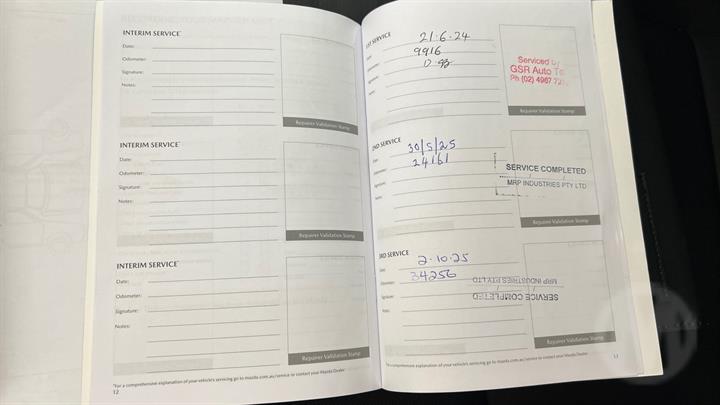 INTERIM SERVICE*
Date:
Odometer:
Signature:
Notes:
Repairer Validation Stamp
INTERIM SERVICE*
Date:
Odometer:
Signature:
Notes:
Repairer Validation Stamp
INTERIM SERVICE*
Date:
Odometer:
Signature:
Notes:
Repairer Validation Stamp
*For a comprehensive explanation of your vehicle's servicing go to mazda.com.au/service or contact your Mazda Dealer
12
1ST SERVICE
21.6.24
9916
Serviced by
GSR Auto
Ph (02) 4967
Repairer Validation Stamp
2ND SERVICE
Date:
30/5/25
Odometer:
24161
Signature:
Notes:
SERVICE COMPLETED
MRP INDUSTRIES PTY LTD
Repairer Validation Stamp
3RD SERVICE
Date:
2.10.25
Odometer:
34256
Signature:
Notes:
MRP INDUSTRIES PTY LTD
SERVICE COMPLETED
Repairer Validation Stamp
*For a comprehensive explanation of your vehicle's servicing go to mazda.com.au/service or contact your Mazda Dealer
13